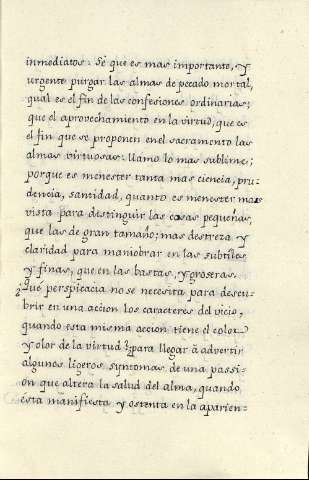 inmediatos: Sè que es mas importante, y
urgente purgar las almas de pecado mortal,
qual es el fin de las confesiones ordinarias;
que el aprovechamiento en la virtud, que es
el fin que se proponen en el sacramento las
almas virtuosas: llamo lo mas sublime;
porque es menester tanta mas ciencia, pru-
dencia, santidad, quanto es menester mas
vista para distinguir las cosas pequeñas,
que las de gran tamaño; mas destreza y
claridad para maniobrar en las subtiles
y finas, que en las bastas, y groseras.
¿Què perspicacia no se necesita para descu-
brir en una accion los caracteres del vicio,
quando esta misma accion tiene el color
y olor de la virtud? ¿para llegar à advertir
algunos ligeros syntomas de una passi-
on que altera la salud del alma, quando
èsta manifiesta y ostenta en la aparien-